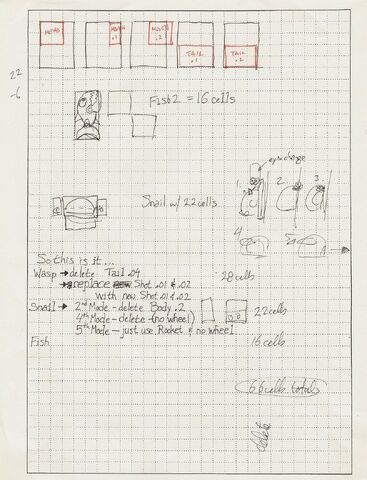 HEAD
MOUTH .1
MOUTH .2
TAIL .1
TAIL .2
22
-6
Fish 2 = 16 cells
eye change
1. 2. 3.
Snail w/ 22 cells
4. 5.
So this is it...
Wasp → delete Tail .04
28 cells
→ replace Shot .01 & .02
with new Shot .01 & .02
Snail → 2nd Mode - delete Body .2
22 cells
4th Mode - delete (no wheel)
5th Mode - just use Rocket & no wheel
Fish
16 cells
66 cells total
delete